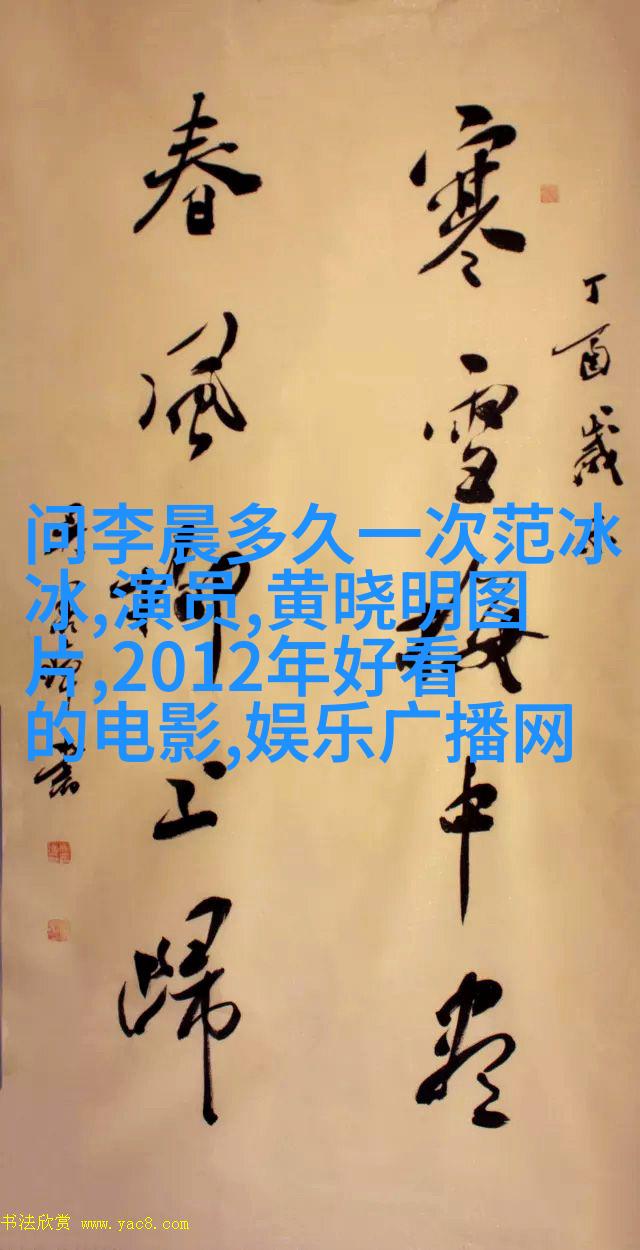 丁酉歲
寒雪梅中盡
春風柳上歸
问李晨多久一次范冰
冰,演员,黄晓明图
片,2012年好看
的电影,娱乐广播网
书法欣赏 www.yac8.com